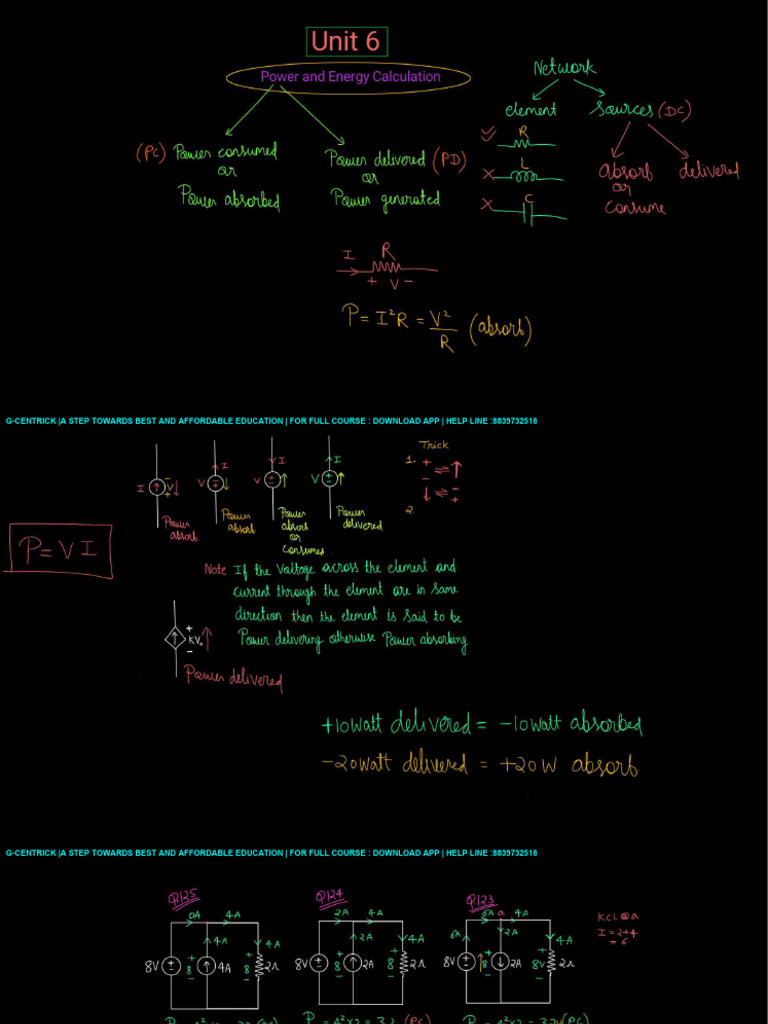 Unit 6
Power and Energy Calculation
Network
element
Sources (DC)
R
L
C
absorb
or
Consume
delivered
(PC) Power consumed
or
Power absorbed
Power delivered (PD)
or
Power generated
I R
+ V -
P = I²R = V²/R (absorb)
G-CENTRICK |A STEP TOWARDS BEST AND AFFORDABLE EDUCATION | FOR FULL COURSE : DOWNLOAD APP | HELP LINE :8839732518
I - V + ↓
Power
absorb
V I ↓
Power
absorb
V I ↑
Power
absorb
or
Consumed
V I ↑
Power
delivered
Trick
1. + - ⇌ ↑
↓ ⇌ - +
2.
P = VI
Note If the voltage across the element and
current through the element are in same
direction then the element is said to be
Power delivering otherwise Power absorbing
+ kV₀ - ↑
Power delivered
+10Watt delivered = -10Watt absorbed
-20Watt delivered = +20W absorb
G-CENTRICK |A STEP TOWARDS BEST AND AFFORDABLE EDUCATION | FOR FULL COURSE : DOWNLOAD APP | HELP LINE :8839732518
Q125
0A 4A
4A 4A
8V + 8 - 4A + 8 - 2Ω
Q124
2A 4A
2A 4A
8V + 8 - 2A + 8 - 2Ω
P = 4²×2 = 32 (PC)
Q123
6A a 4A
6A 2A 4A
8V 8 2A 8V 2Ω
P = 4²×2 = 32W(PC)
KCL @ a
I = 2+4
= 6